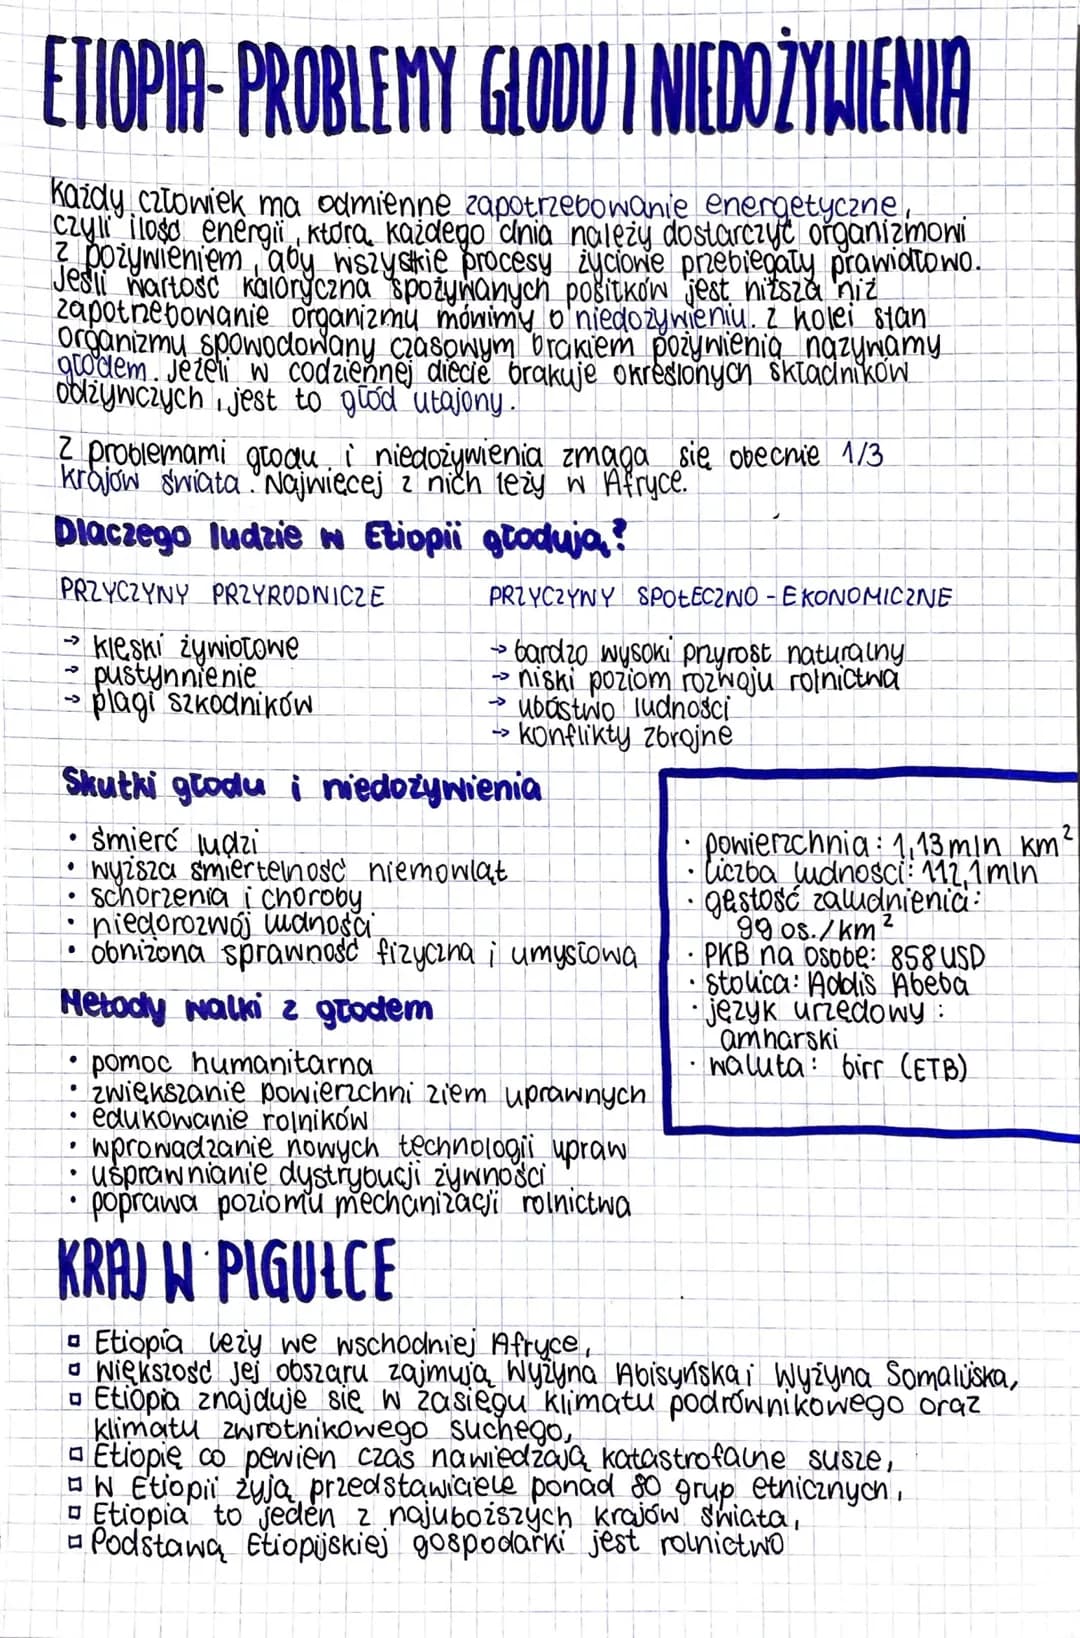 ETIOPIA- PROBLEMY GŁODU I NIEDOŻYWIENIA
Każdy człowiek ma odmienne zapotrzebowanie energetyczne,
czyli ilość energii, którą każdego dnia należy dostarczyć organizmowi
z pożywieniem, aby wszystkie procesy życiowe przebiegały prawidłowo.
Jeśli wartość kaloryczna spożywanych posiłków jest niższa niż
zapotrzebowanie organizmu mówimy o niedożywieniu. Z kolei stan
organizmu spowodowany czasowym brakiem pożywienia nazywamy
głodem. Jeżeli w codziennej diecie brakuje określonych składników
odżywczych, jest to głód utajony.
Z problemami głodu i niedożywienia zmaga się obecnie 1/3
krajów świata. Najwięcej z nich leży w Afryce.
Dlaczego ludzie w Etiopii głodują?
PRZYCZYNY PRZYRODNICZE
→ klęski żywiołowe
→ pustynnienie
→ plagi szkodników
PRZYCZYNY SPOŁECZNO - EKONOMICZNE
→ bardzo wysoki przyrost naturalny
→ niski poziom rozwoju rolnictwa
→ ubóstwo ludności
→ konflikty zbrojne
Skutki głodu i niedożywienia
• śmierć ludzi
• wyższa śmiertelność niemowląt
• schorzenia i choroby
• niedorozwój ludności
• obniżona sprawność fizyczna i umysłowa
Metody walki z głodem
• pomoc humanitarna
• zwiększanie powierzchni ziem uprawnych
• edukowanie rolników
• wprowadzanie nowych technologii upraw
• usprawnianie dystrybucji żywności
• poprawa poziomu mechanizacji rolnictwa
· powierzchnia: 1,13 mln km²
· liczba ludności: 112,1 mln
· gęstość zaludnienia:
99 os./km²
· PKB na osobę: 858 USD
· stolica: Addis Abeba
· język urzędowy:
amharski
· waluta: birr (ETB)
KRAJ W PIGUŁCE
▫ Etiopia leży we wschodniej Afryce,
▫ Większość jej obszaru zajmują Wyżyna Abisyńska i Wyżyna Somalijska,
▫ Etiopia znajduje się w zasięgu klimatu podrównikowego oraz
klimatu zwrotnikowego suchego,
▫ Etiopię co pewien czas nawiedzają katastrofalne susze,
▫ W Etiopii żyją przedstawiciele ponad 80 grup etnicznych,
▫ Etiopia to jeden z najuboższych krajów świata,
▫ Podstawą Etiopijskiej gospodarki jest rolnictwo